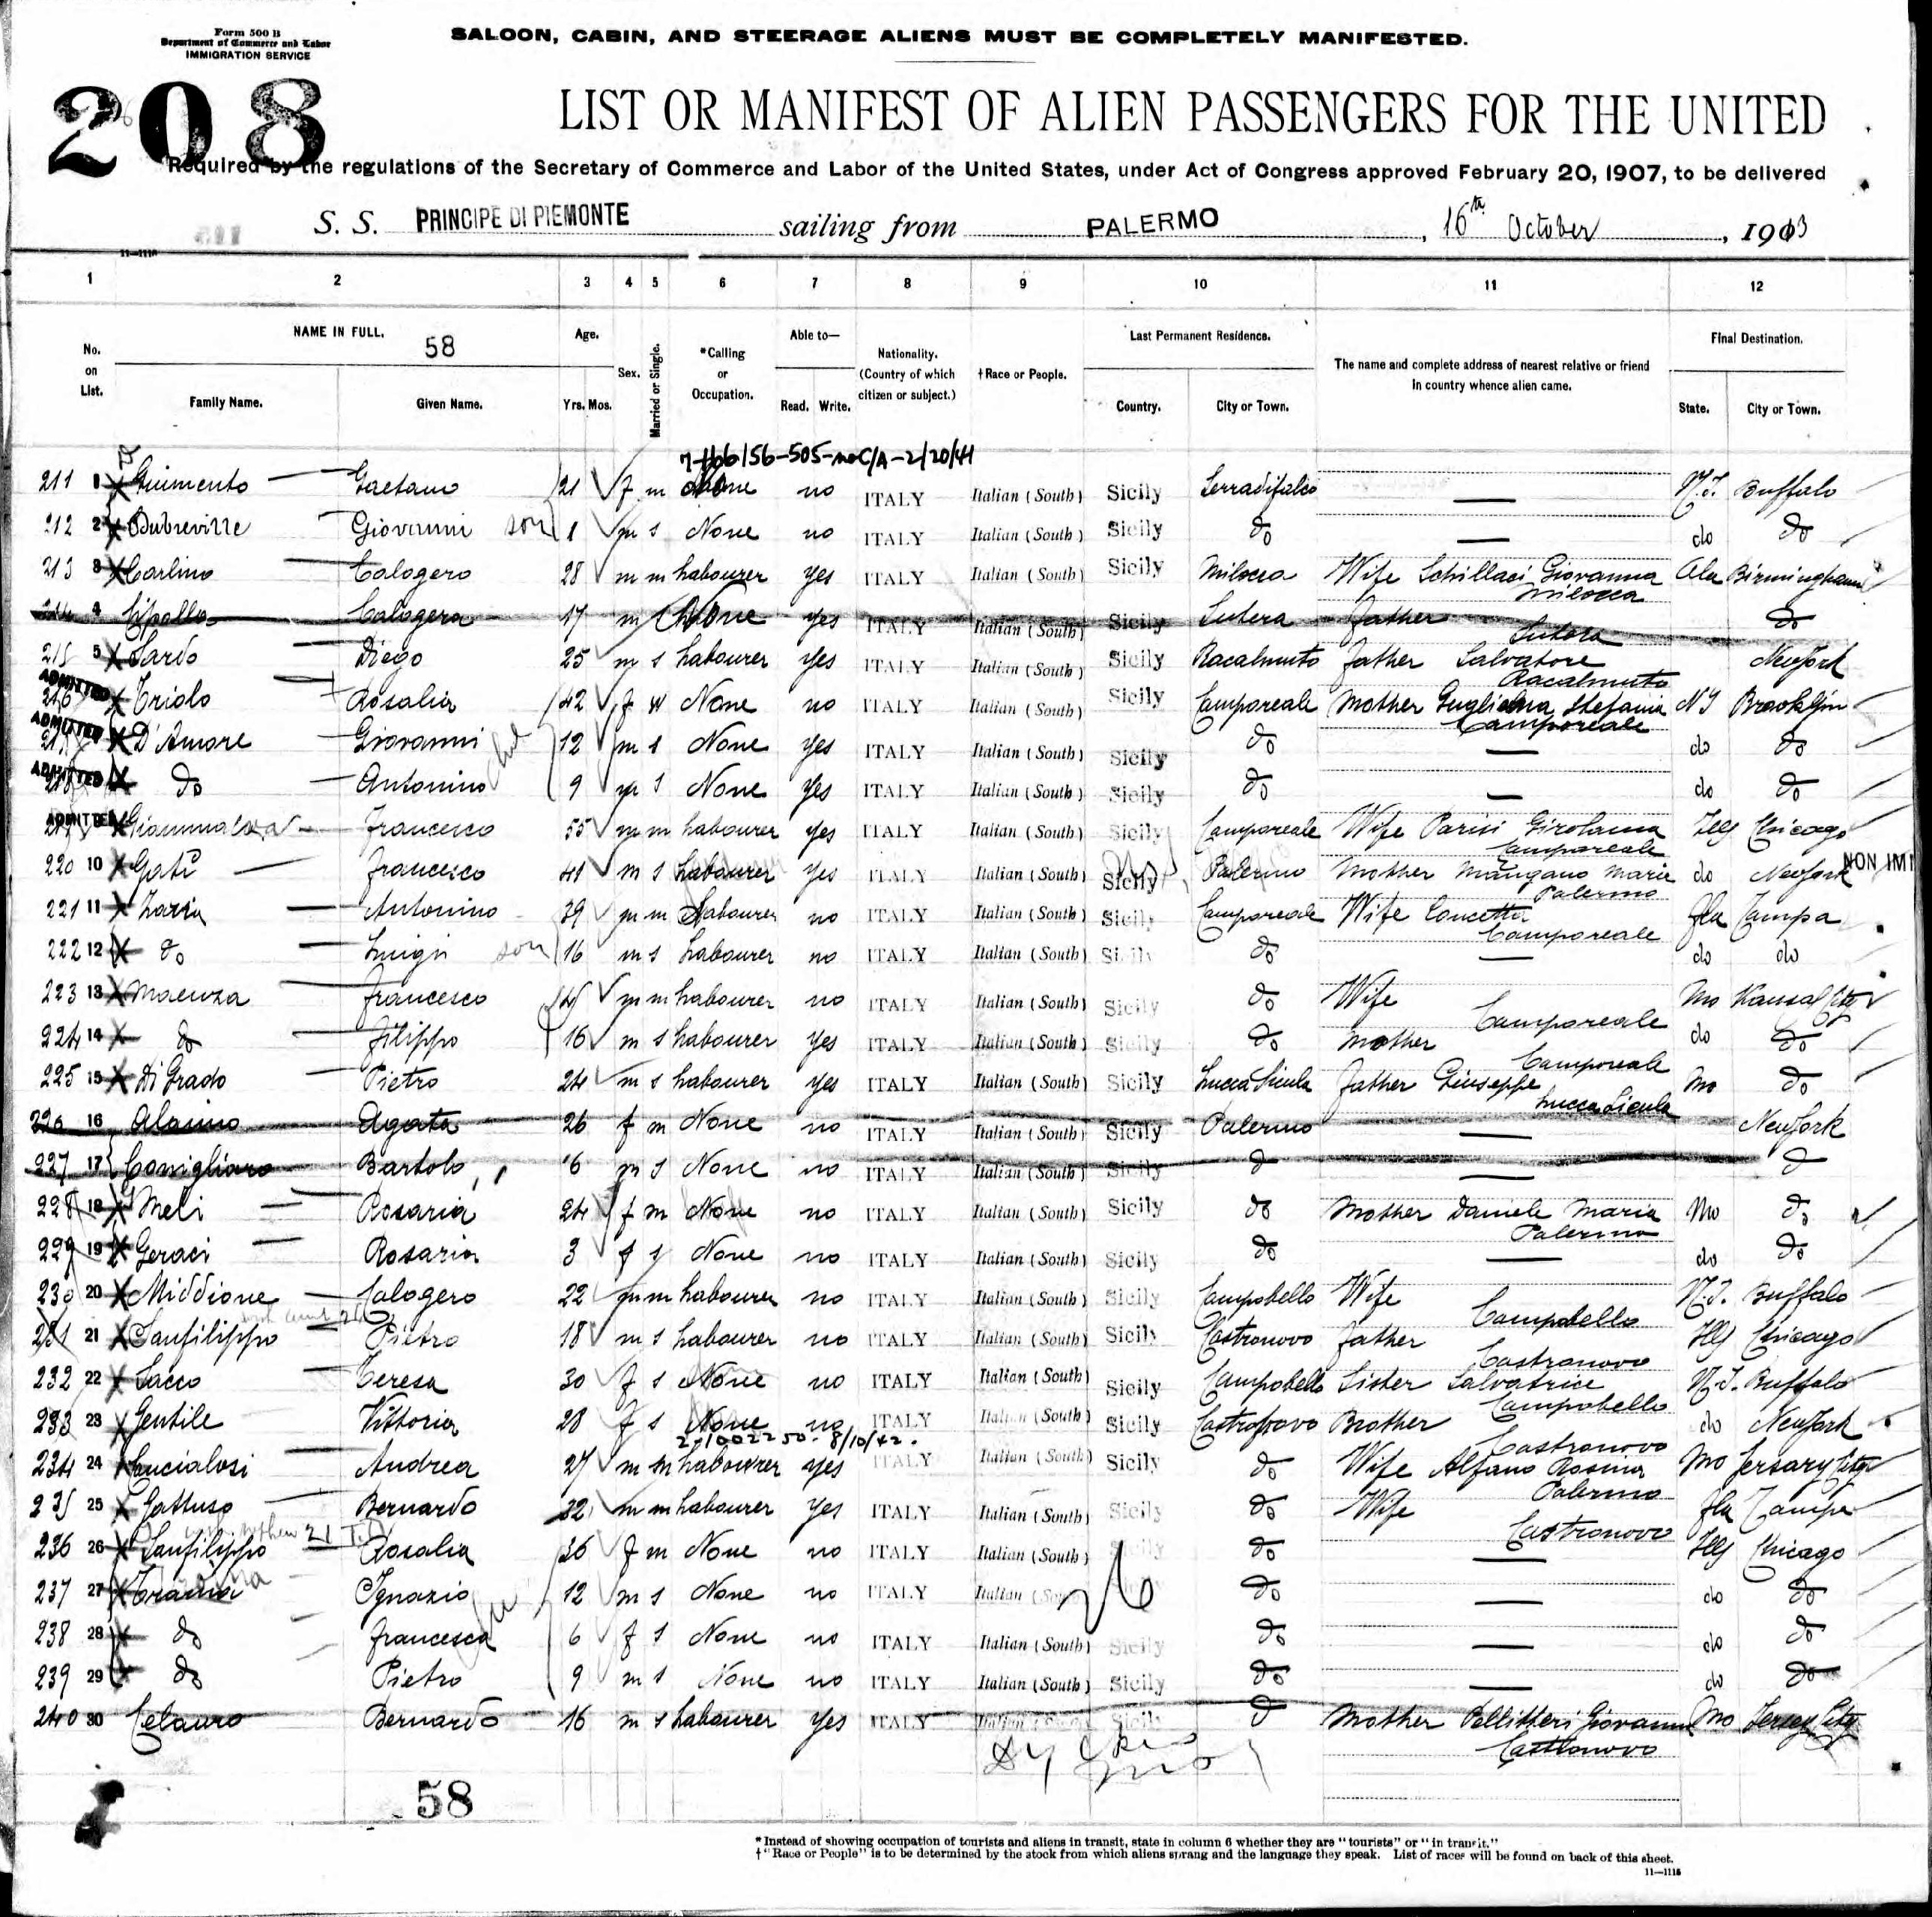 Form 500 B
Department of Commerce and Labor
IMMIGRATION SERVICE
SALOON, CABIN, AND STEERAGE ALIENS MUST BE COMPLETELY MANIFESTED.
208
LIST OR MANIFEST OF ALIEN PASSENGERS FOR THE UNITED
Required by the regulations of the Secretary of Commerce and Labor of the United States, under Act of Congress approved February 20, 1907, to be delivered
S. S. PRINCIPE DI PIEMONTE sailing from PALERMO, 16th October, 1913
1 2 3 4 5 6 7 8 9 10 11 12
No. on List. NAME IN FULL. 58 Age. Sex. Married or Single. *Calling or Occupation. Able to— Nationality. (Country of which citizen or subject.) †Race or People. Last Permanent Residence. The name and complete address of nearest relative or friend in country whence alien came. Final Destination.
Family Name. Given Name. Yrs. Mos. Read. Write. Country. City or Town. State. City or Town.
211 1 Gaetana 21 f m None no ITALY Italian (South) Sicily Serradifalco — Buffalo
212 2 Giovanni son 1 m s None no ITALY Italian (South) Sicily do — do do
213 3 Carlino Calogero 28 m m labourer yes ITALY Italian (South) Sicily Milocca Wife Schillaci Giovanna Milocca Ala Birmingham
214 4 Cipolla Calogera 17 None yes ITALY Italian (South) Sicily Sutera father Sutera do
215 5 Sardo Diego 25 m s labourer yes ITALY Italian (South) Sicily Racalmuto father Salvatore Racalmuto New York
ADMITTED 216 Triolo Rosalia 42 f w None no ITALY Italian (South) Sicily Camporeale Mother Stefania Camporeale NY Brooklin
ADMITTED D'Amore Giovanni 12 m s None yes ITALY Italian (South) Sicily do — do do
ADMITTED do Antonino 9 m s None yes ITALY Italian (South) Sicily do — do do
ADMITTED Francesco 55 m m labourer yes ITALY Italian (South) Sicily Camporeale Wife Parisi Girolama Camporeale Ills Chicago
220 10 Gati Francesco 41 m s labourer yes ITALY Italian (South) Sicily Palermo Mother Mangano Maria Palermo do New York NON IMM
221 11 Antonino 39 m m labourer no ITALY Italian (South) Sicily Camporeale Wife Concetta Camporeale Fla Tampa
222 12 do Luigi son 16 m s labourer no ITALY Italian (South) Sicily do — do do
223 13 Maenza Francesco m m labourer no ITALY Italian (South) Sicily do Wife Camporeale Mo Kansas City
224 14 do Filippo 16 m s labourer yes ITALY Italian (South) Sicily do Mother Camporeale do do
225 15 Di Grado Pietro 24 m s labourer yes ITALY Italian (South) Sicily Lucca Sicula father Giuseppe Lucca Sicula Mo do
226 16 Alaimo Agata 26 f m None no ITALY Italian (South) Sicily Palermo — New York
227 17 Conigliaro Bartolo 6 m s None no ITALY Italian (South) Sicily do — do
228 18 Meli Rosaria 24 f m None no ITALY Italian (South) Sicily do Mother Daniele Maria Palermo Mo do
229 19 Geraci Rosaria 3 f s None no ITALY Italian (South) Sicily do — do do
230 20 Middione Calogero 22 m m labourer no ITALY Italian (South) Sicily Campobello Wife Campobello Buffalo
231 21 Sanfilippo Pietro 18 m s labourer no ITALY Italian (South) Sicily Castronovo father Castronovo Ills Chicago
232 22 Sacco Teresa 30 f s None no ITALY Italian (South) Sicily Campobello Sister Salvatrice Campobello Buffalo
233 23 Gentile Vittoria 28 f s None no ITALY Italian (South) Sicily Castronovo Brother Castronovo do New York
234 24 Andrea 27 m m labourer yes ITALY Italian (South) Sicily do Wife Alfano Rosina Palermo Mo Jersary City
235 25 Gattuso Bernardo 32 m m labourer yes ITALY Italian (South) Sicily do Wife Castronovo Fla Tampa
236 26 Sanfilippo Rosalia 36 f m None no ITALY Italian (South) Sicily do — Ills Chicago
237 27 Ignazio 12 m s None no ITALY Italian (South) do — do do
238 28 do Francesca 6 f s None no ITALY Italian (South) Sicily do — do do
239 29 do Pietro 9 m s None no ITALY Italian (South) Sicily do — do do
240 30 Celauro Bernardo 16 m s labourer yes ITALY Italian (South) Sicily do Mother Pellitteri Giovanna Castronovo Mo Jersey City
58
*Instead of showing occupation of tourists and aliens in transit, state in column 6 whether they are "tourists" or "in transit."
†"Race or People" is to be determined by the stock from which aliens sprang and the language they speak. List of races will be found on back of this sheet.
11—1115